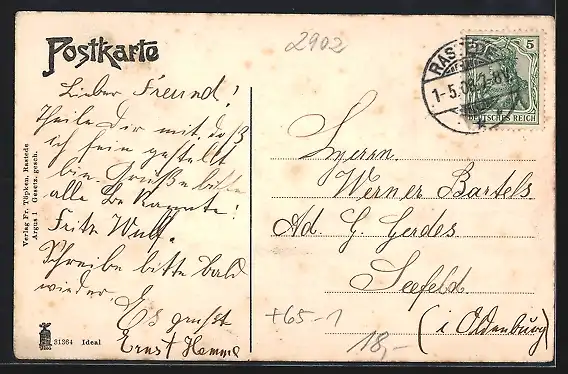 Postkarte
2902
RASTEDE
1-5.08.7-8V.
5
DEUTSCHES REICH
Lieber Freund!
Theile Dir mit, daß
ich fein gestellt
bin. Grüße bitte
alle Bekannte!
Fritz
Schreibe bitte bald
wieder
Es grüßt
Ernst
Herrn
Werner Bartels
Ad. G Gerdes
Seefeld.
(i Oldenburg)
+65-1
18,-
Verlag Fr. Töpken, Rastede
Argus I Gesetz. gesch.
31364 Ideal